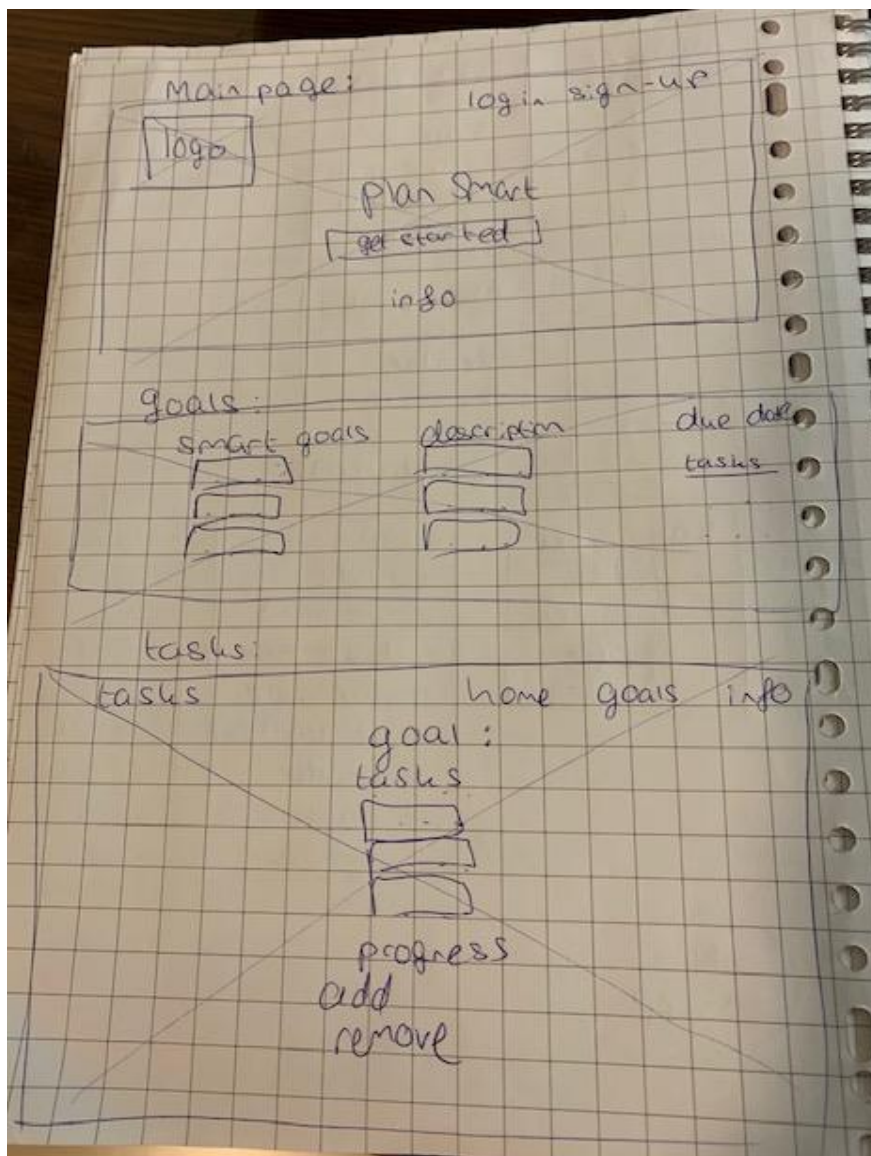 Main page:
login sign-up
logo
Plan Smart
get started
info
goals:
smart goals description due date
tasks
tasks:
tasks home goals info
goal:
tasks
progress
add
remove